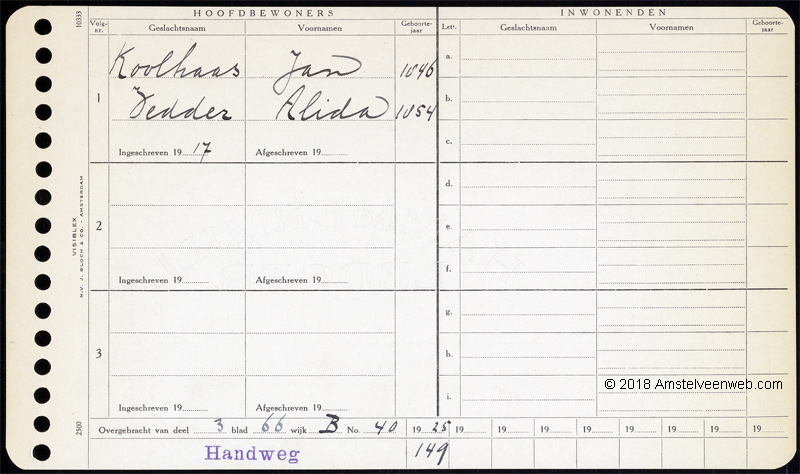 HOOFDBEWONERS
INWONENDEN
10333
Volg-nr.
Geslachtsnaam
Voornamen
Geboorte-jaar
Lett.
Geslachtsnaam
Voornamen
Geboorte-jaar
1
Koolhaas Jan 1846
Vedder Alida 1854
Ingeschreven 19 17 Afgeschreven 19
a.
b.
c.
2
Ingeschreven 19 Afgeschreven 19
d.
e.
f.
3
Ingeschreven 19 Afgeschreven 19
g.
h.
i.
VISIBLEX
N.V. J. BLOCH & CO. - AMSTERDAM
2500
© 2018 Amstelveenweb.com
Overgebracht van deel 3 blad 66 wijk B No. 40 19 25 19 19 19 19 19 19 19 19
Handweg 149